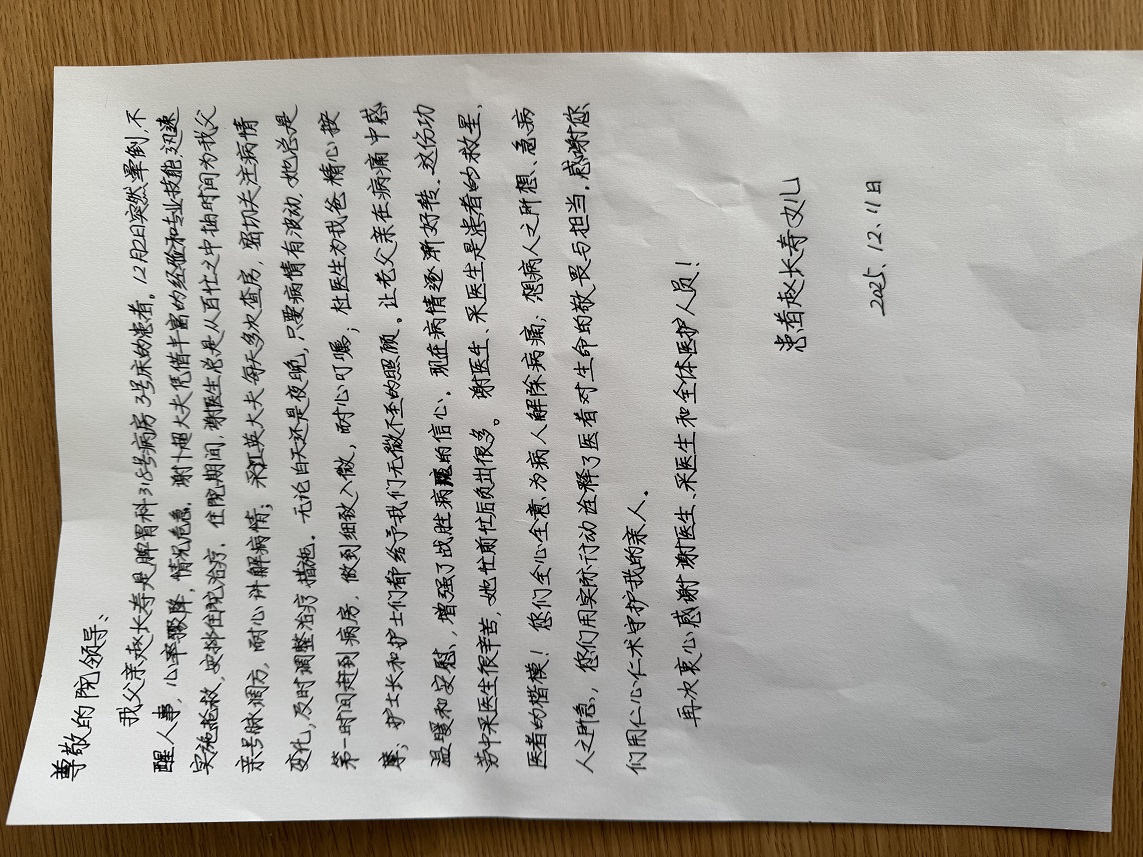 尊敬的院领导：
我父亲赵长寿是脾胃科318号病房3号床的患者。12月2日突然晕倒，不
醒人事，心率骤降，情况危急，谢卜超大夫凭借丰富的经验和专业技能，迅速
实施抢救，安排住院治疗，住院期间，谢医生总是从百忙之中抽时间为我父
亲号脉调方，耐心讲解病情；采江英大夫每天多次查房，密切关注病情
变化，及时调整治疗措施。无论白天还是夜晚，只要病情有波动，她总是
第一时间赶到病房，做到细致入微，耐心叮嘱；杜医生为我爸精心按
摩；护士长和护士们都给予我们无微不至的照顾。让老父亲在病痛中感
温暖和安慰，增强了战胜病魔的信心，现在病情逐渐好转，这份功
劳中采医生很辛苦，她忙前忙后负出很多。谢医生、采医生是患者的救星，
医者的楷模！您们全心全意为病人解除病痛；想病人之所想、急病
人之所急，您们用实际行动诠释了医者对生命的敬畏与担当，感谢您
们用仁心仁术守护我的亲人。
再次衷心感谢谢医生、采医生和全体医护人员！
患者赵长寿女儿
2025、12、11日